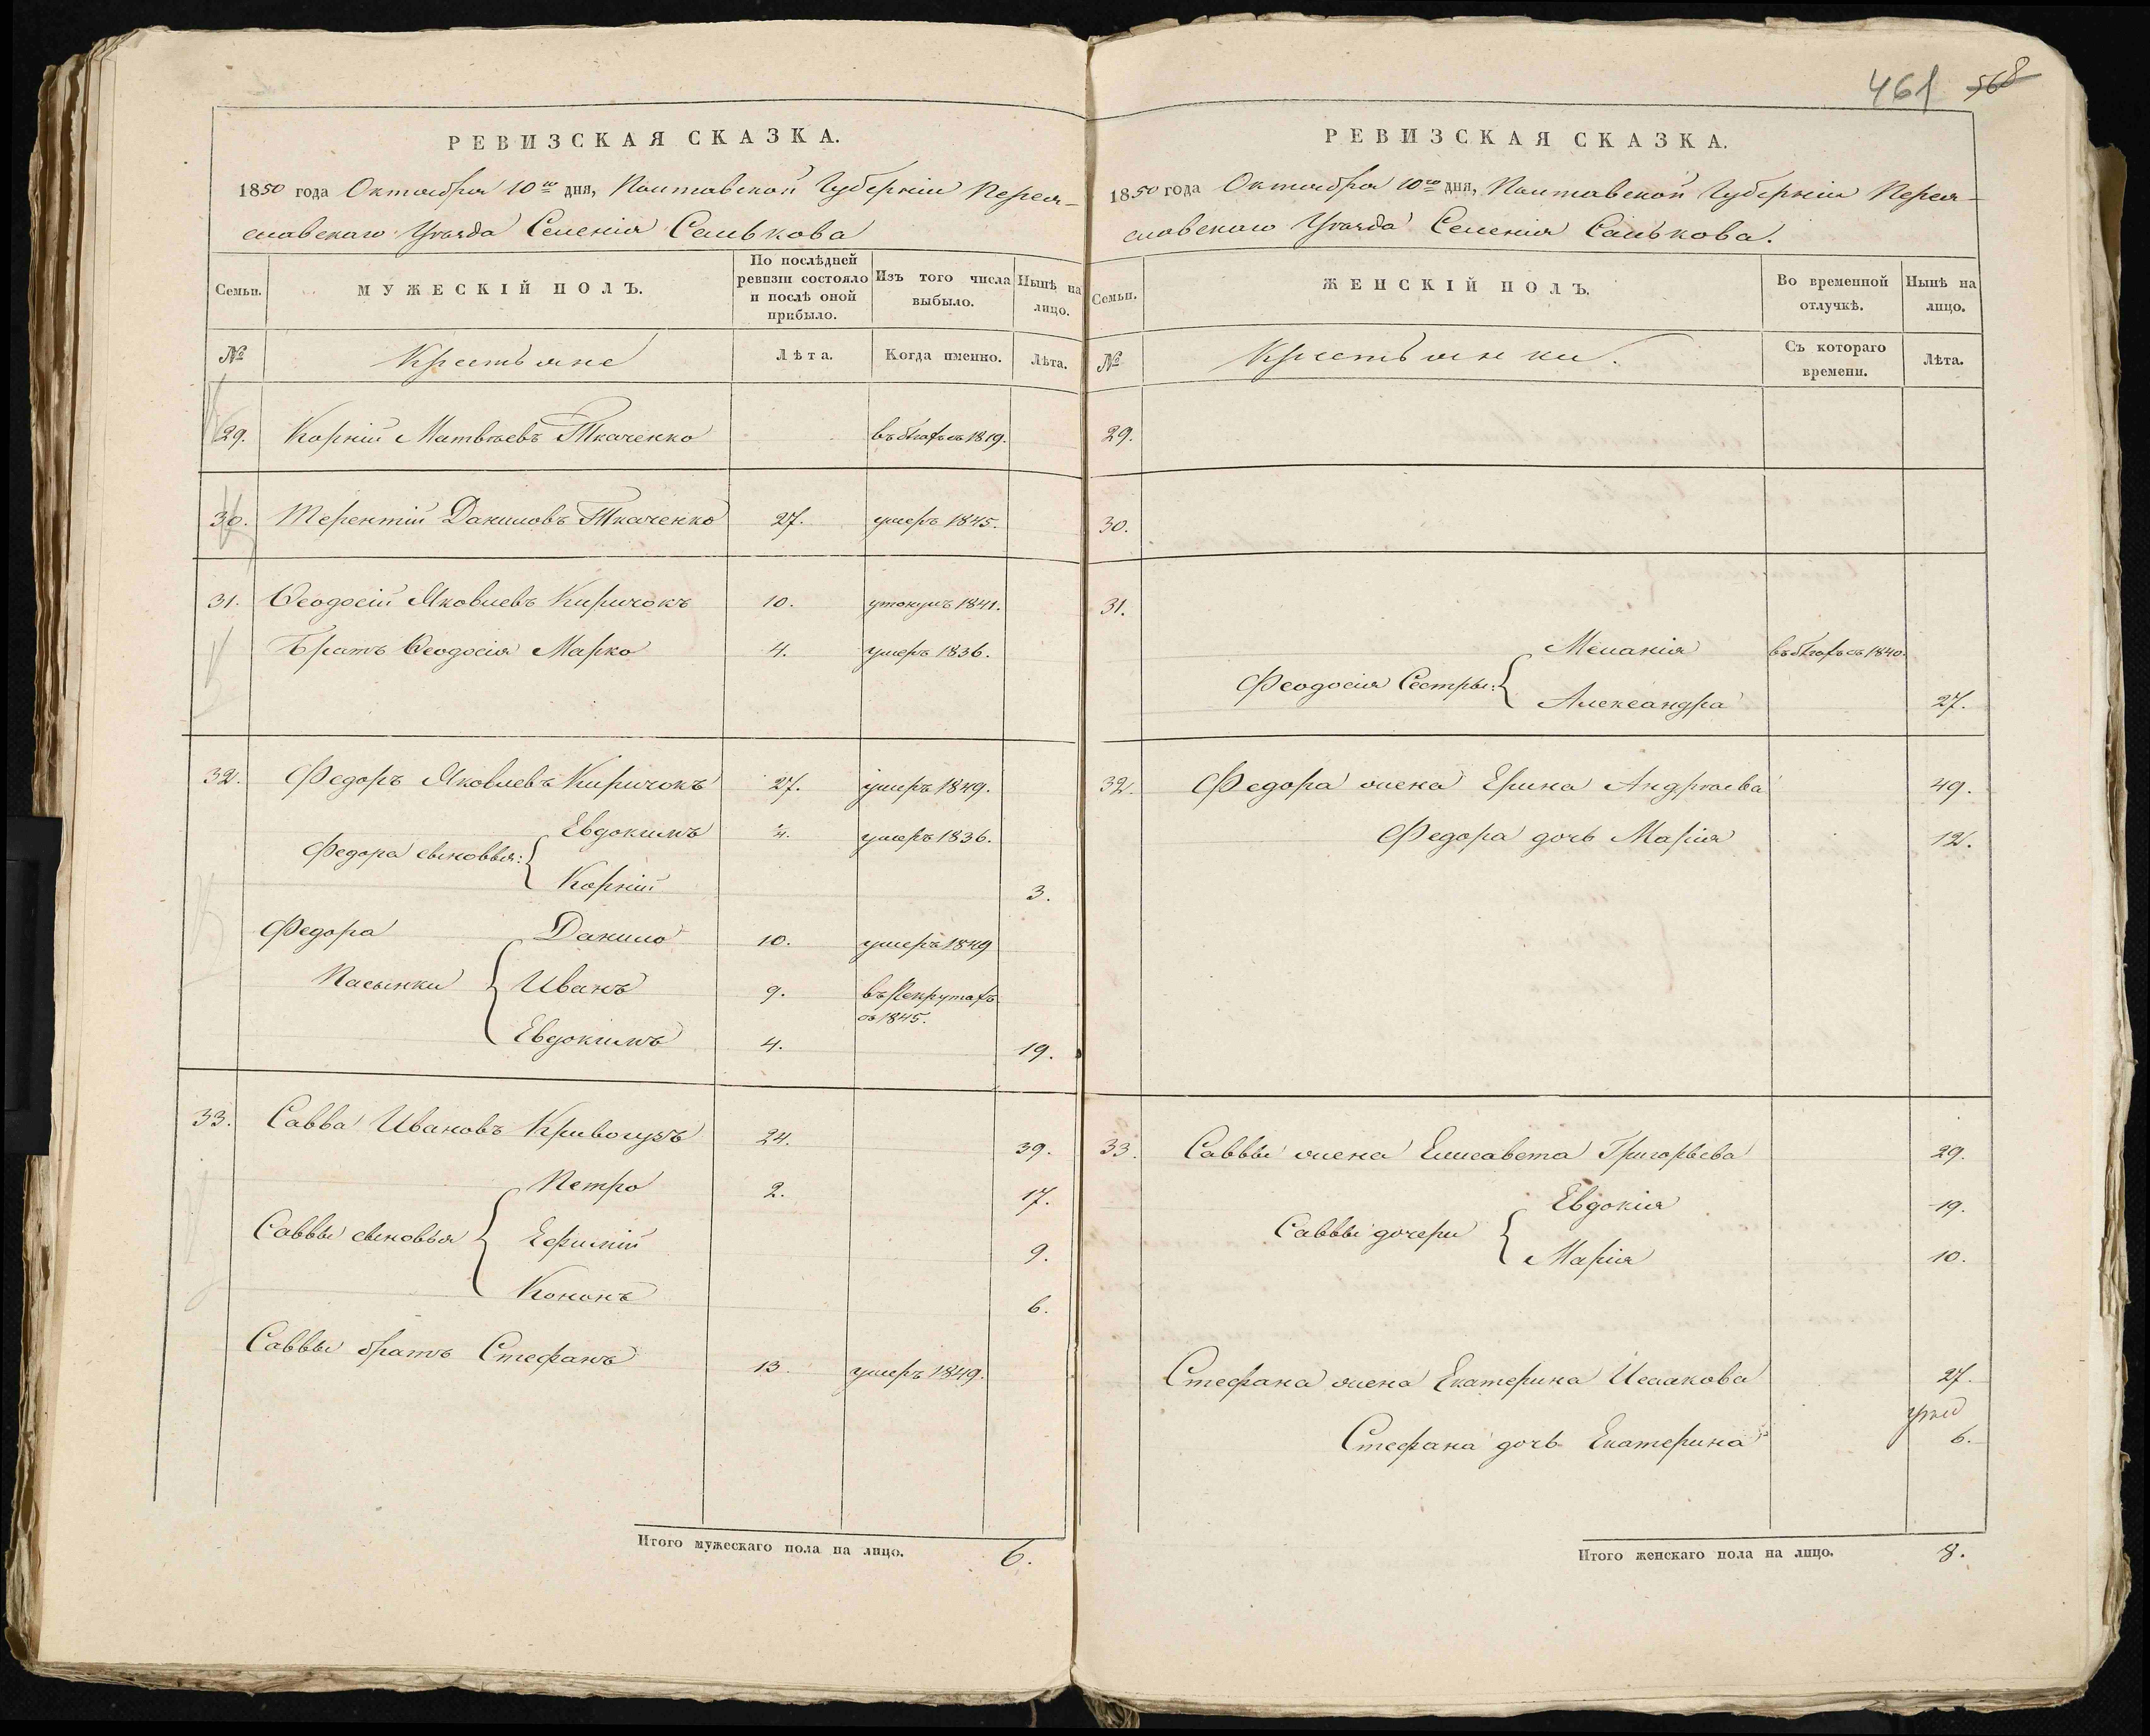 461 568
РЕВИЗСКАЯ СКАЗКА.
1850 года Октября 10го дня, Полтавской Губерніи Перея-
славскаго Уѣзда Селенія Салькова
Семьи.
МУЖЕСКІЙ ПОЛЪ.
По послѣдней ревизіи состояло и послѣ оной прибыло.
Изъ того числа выбыло.
Нынѣ на лицо.
№ Крестьяне Лѣта. Когда именно. Лѣта.
29. Корній Матвѣевъ Ткаченко въ бѣгахъ съ 1819.
30. Терентій Даниловъ Ткаченко 27. умеръ 1845.
31. Ѳеодосій Яковлевъ Киричокъ 10. утонулъ 1841.
Братъ Ѳеодосія Марко 4. умеръ 1836.
32. Федоръ Яковлевъ Киричокъ 27. умеръ 1849.
Федора сыновья: { Евдокимъ умеръ 1836.
Корній 3.
Федора Пасынки { Данило 10. умеръ 1849
Иванъ 9. въ Рекрутахъ съ 1845.
Евдокимъ 4. 19.
33. Савва Ивановъ Кривогузъ 24. 39.
Саввы сыновья { Петро 2. 17.
Ефимій 9.
Кононъ 6.
Саввы братъ Стефанъ 13. умеръ 1849.
Итого мужескаго пола на лицо. 6.
РЕВИЗСКАЯ СКАЗКА.
1850 года Октября 10го дня, Полтавской Губерніи Перея-
словскаго Уѣзда Селенія Салькова.
Семьи.
ЖЕНСКІЙ ПОЛЪ.
Во временной отлучкѣ.
Нынѣ на лицо.
№ Крестьянки. Съ котораго времени. Лѣта.
29.
30.
31.
Феодосія Сестры: { Меланія въ бѣгахъ съ 1840.
Александра 27.
32. Федора жена Ерина Андрѣева 49.
Федора дочь Марія 12.
33. Саввы жена Елисавета Григорьева 29.
Саввы дочери { Евдокія 19.
Марія 10.
Стефана жена Екатерина Исаакова 27.
Стефана дочь Екатерина 6.
Итого женскаго пола на лицо. 8.